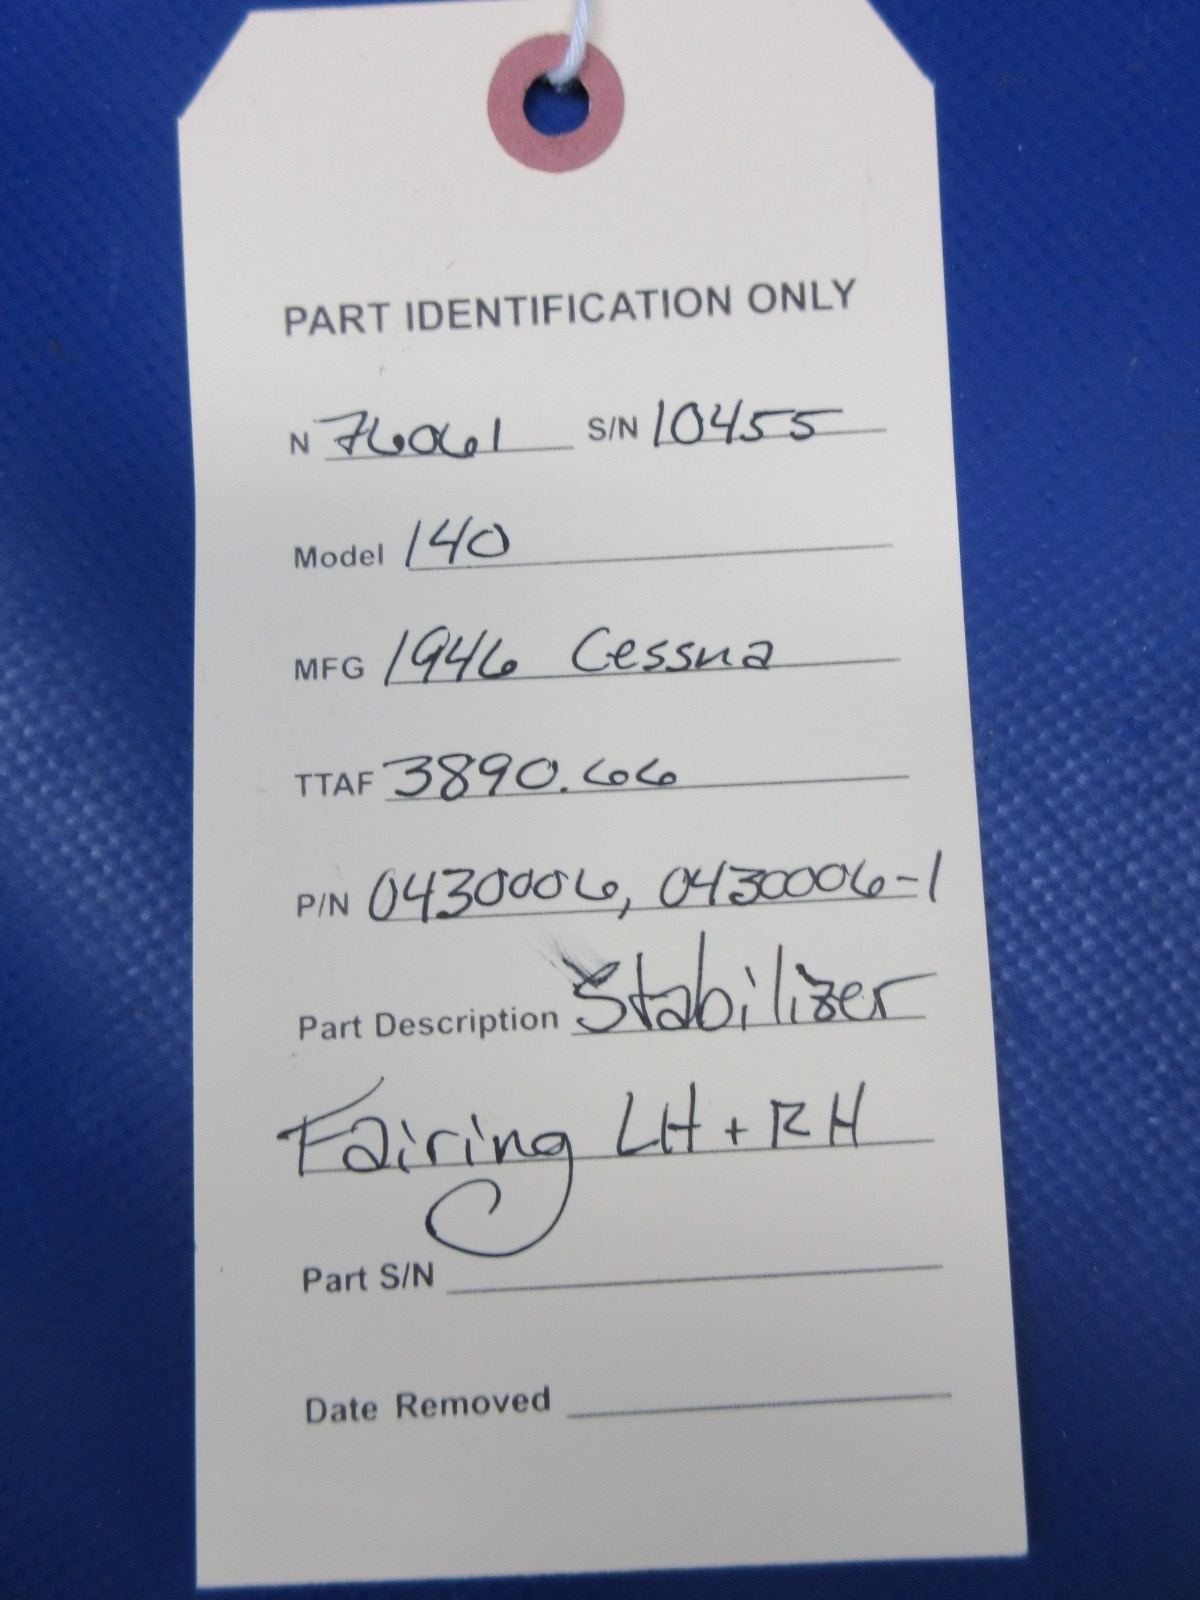 PART IDENTIFICATION ONLY
N 76061 S/N 10455
Model 140
MFG 1946 Cessna
TTAF 3890.66
P/N 0430006, 0430006-1
Part Description Stabilizer
Fairing LH + RH
Part S/N
Date Removed